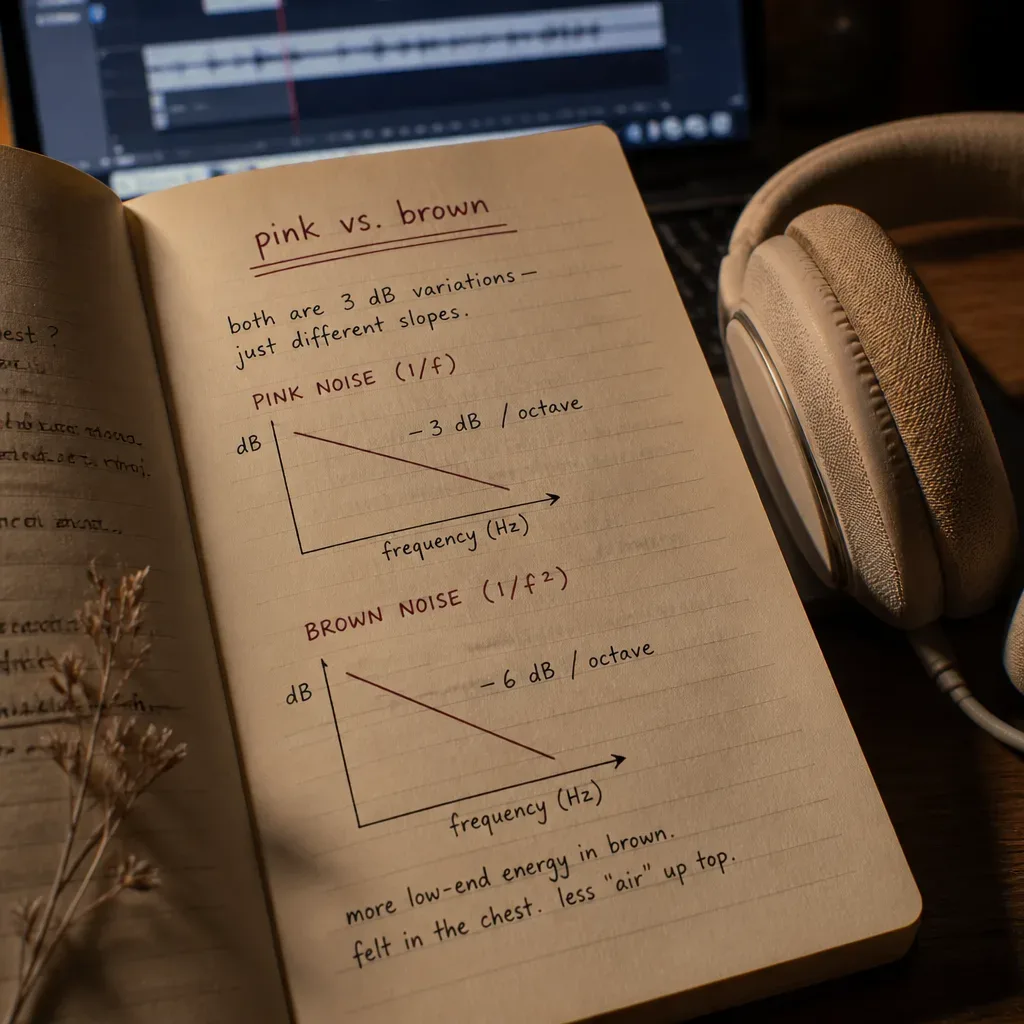 pink vs. brown
both are 3 dB variations—
just different slopes.
PINK NOISE (1/f)
dB
-3 dB / octave
frequency (Hz)
BROWN NOISE (1/f²)
dB
-6 dB / octave
frequency (Hz)
more low-end energy in brown.
felt in the chest. less "air" up top.